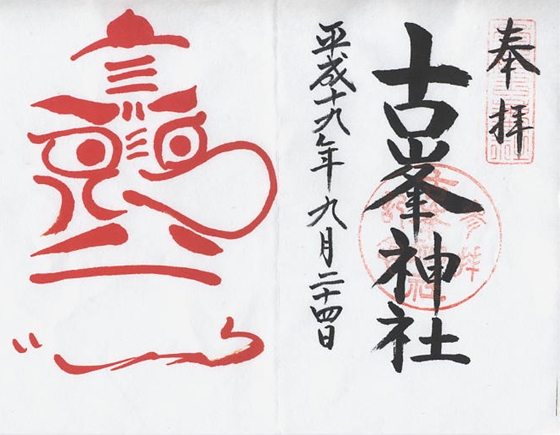 奉拝
古峯神社
平成十九年九月二十四日